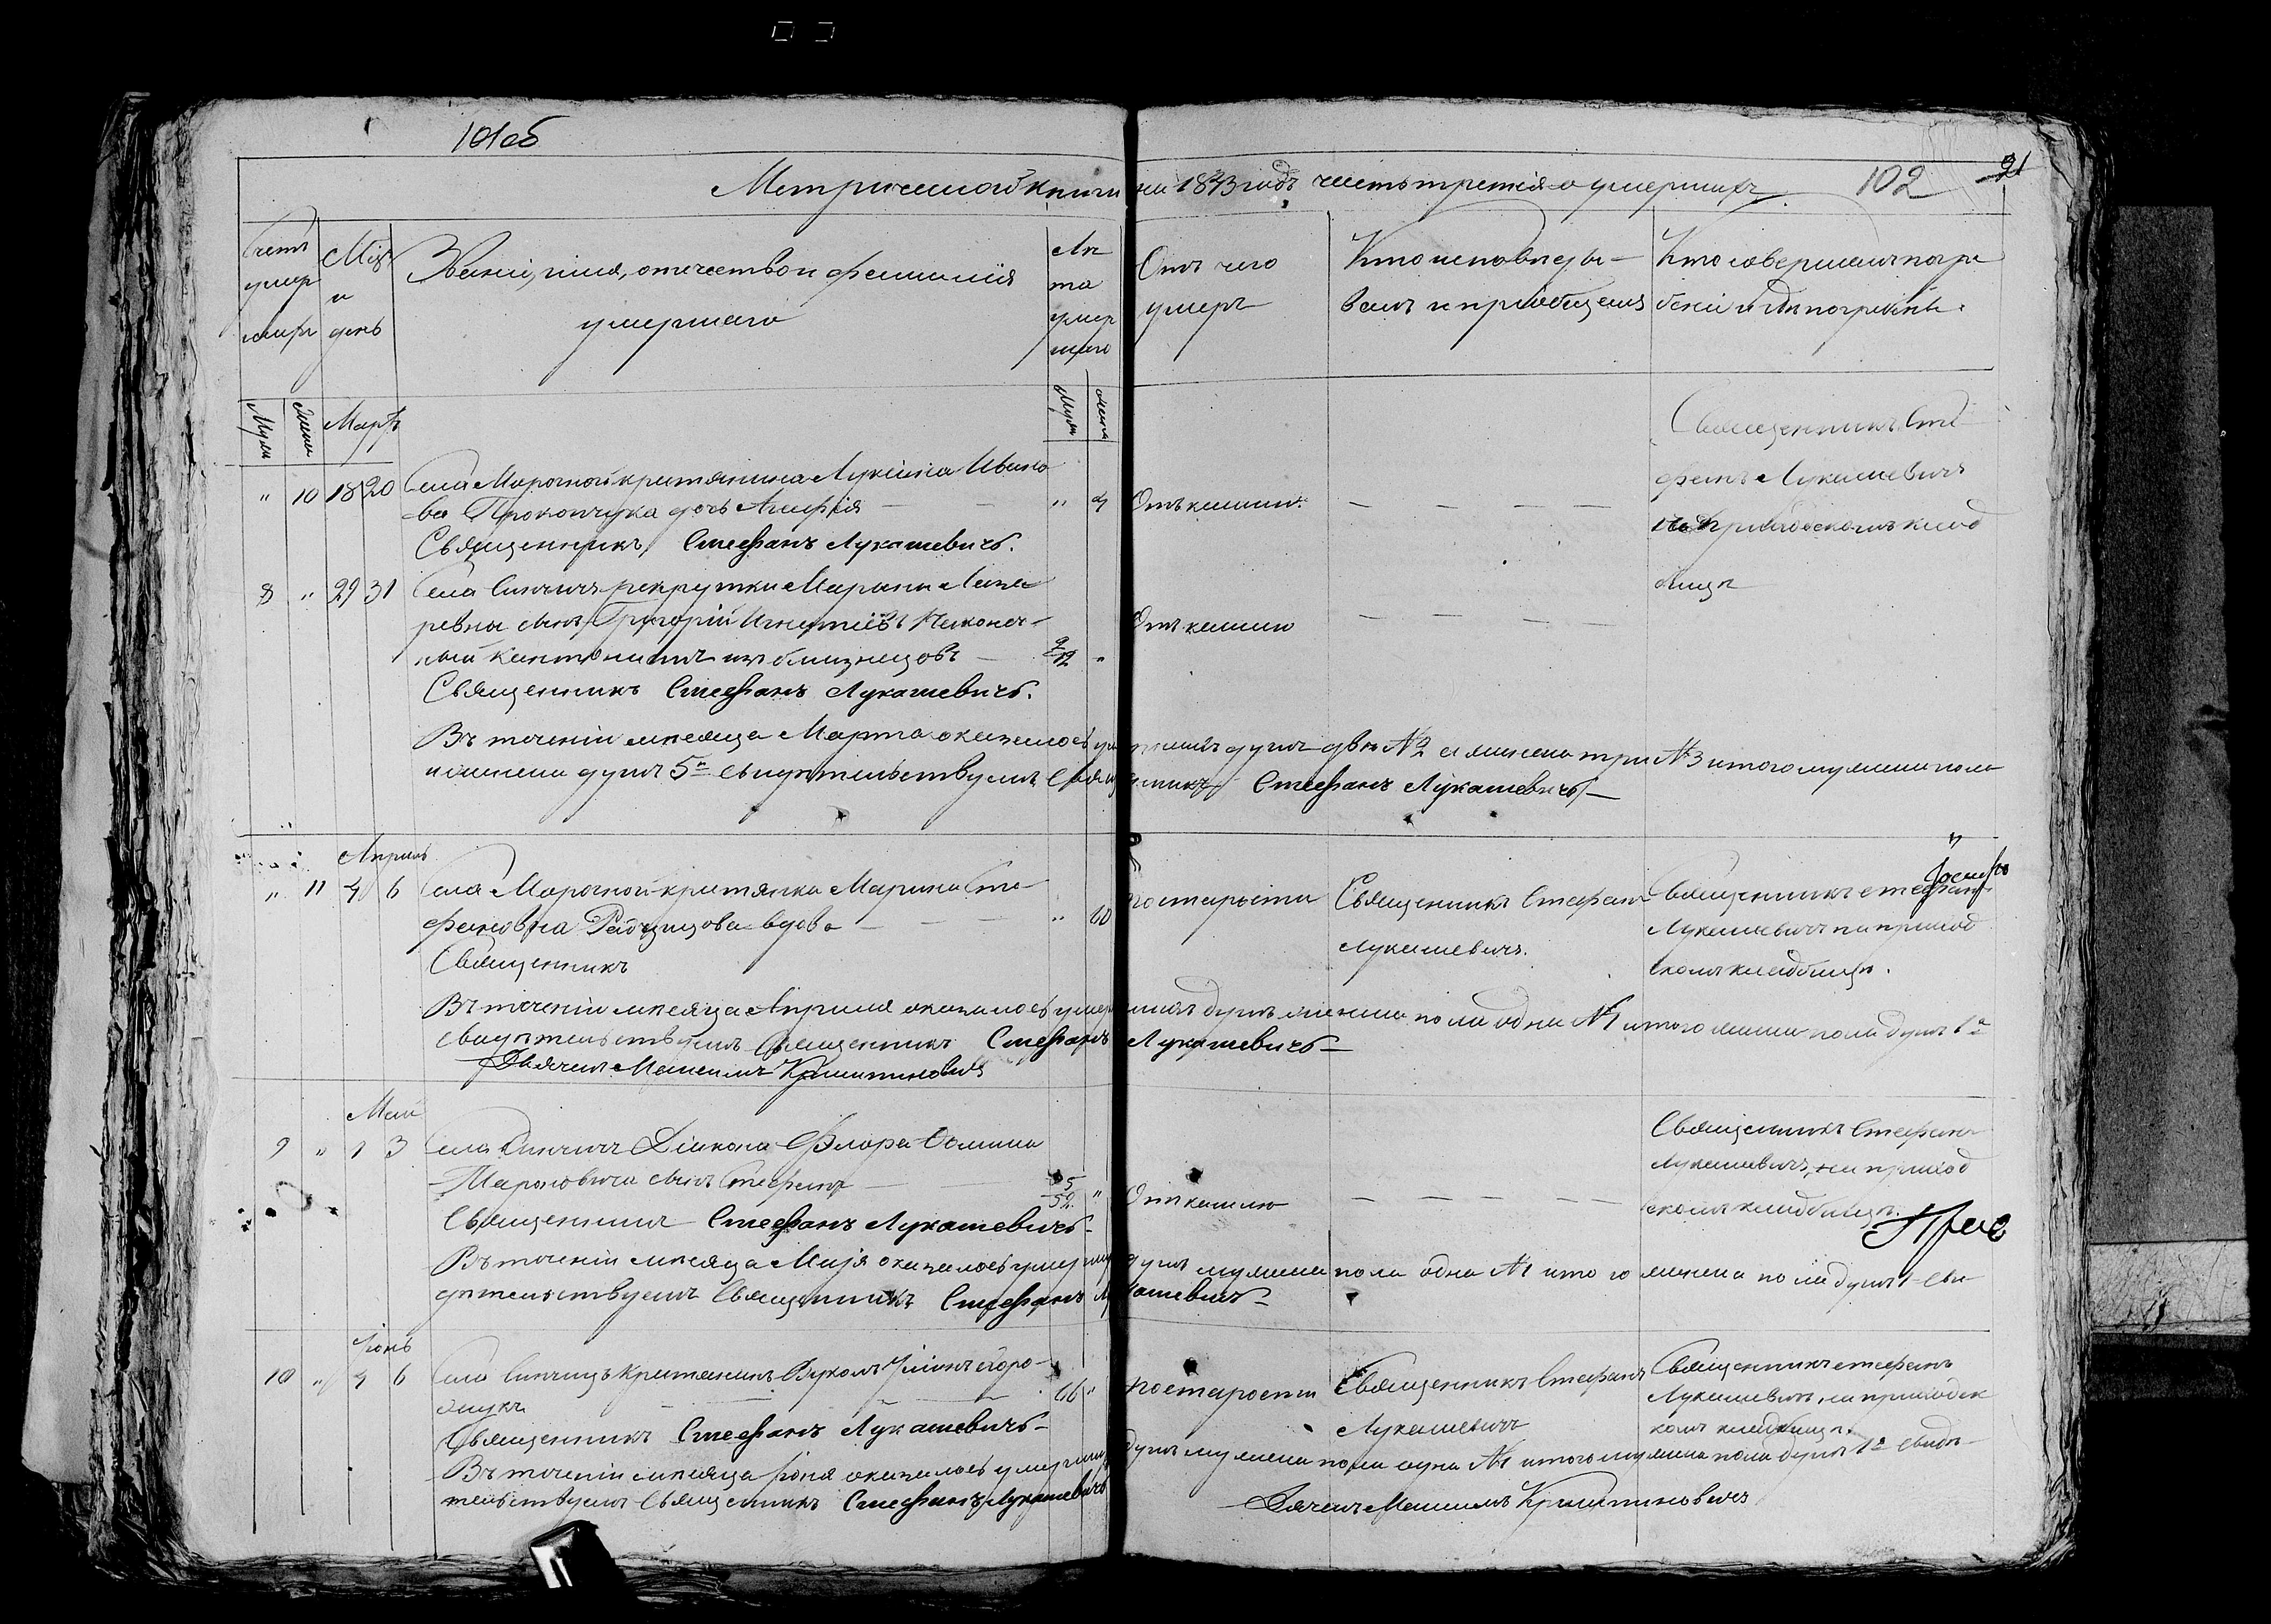 101об
Метрической книги на 1843 годъ часть третія о умершихъ 102
21
Счетъ умер шихъ
Мцъ и день
Званіе, имя, отчество и фамилія
умершаго
Лѣ та умер шаго
Отъ чего умеръ
Кто исповѣды-
валъ и пріобщалъ
Кто совершалъ погре
беніе и гдѣ погребены.
Муж
Женс
Мартъ
Муж
Женс
" 10 18 20 Села Морочной крестянина Лукіяна Ивано
ва Прокопчука дочь Агафія — " 4 Отъ кашлю. — — — —
Священникъ Стефанъ Лукашевичъ.
Священникъ Сте
фанъ Лукашевичъ
на приходскомъ клад
бищѣ
8 " 29 31 Села Синчичъ рекрутки Марины Лаза
ревны сынъ Григорій Игнатіевъ
ный кантонистъ изъ близнецовъ — 9/12 " Отъ кашлю — — — —
Священникъ Стефанъ Лукашевичъ.
Въ теченіи мѣсяца Марта оказалось умершихъ душъ двѣ №2 а женска три №3 итого мужеска пола
и женска душъ 5ъ свидѣтельствуемъ Священникъ Стефанъ Лукашевичъ —
Апрель
" 11 4 6 Села Морочной крестянка Марина Сте-
фановна вдова — " 60 по старости Священникъ Стефанъ
Лукашевичъ.
Священникъ Стефанъ
Лукашевичъ на приход
скомъ кладбищѣ.
Іосифъ
Священникъ
Въ теченіи мѣсяца Апреля оказалось умершихъ душъ женска пола одна №1 итого женска пола душъ 1а
свидѣтельствуемъ Священникъ Стефанъ Лукашевичъ —
Дячекъ
Май
9 " 1 3 Села Синчичъ Діякона Флора
сынъ Стефанъ — 5/52 " Отъ кашлю — — — —
Священникъ Стефанъ Лукашевичъ —
Священникъ Стефанъ
Лукашевичъ, на приход
скомъ кладбищѣ.
Въ теченіи мѣсяца Маія оказалось умершихъ душъ мужеска пола одна №1 итого женска пола душъ 1 сви-
дѣтельствуемъ Священникъ Стефанъ Лукашевичъ —
Іюнь
10 " 4 6 Села Синчицъ Крестянинъ
— 66 " по старости Священникъ Стефанъ
Лукашевичъ
Священникъ Стефанъ
Лукашевичъ, на приходск
комъ кладбищѣ.
Священникъ Стефанъ Лукашевичъ —
Въ теченіи мѣсяца Іюня оказалось умершихъ душъ мужеска пола одна №1 итого мужеска пола душъ 1а свидѣ-
тельствуемъ Священникъ Стефанъ Лукашевичъ
Дячекъ